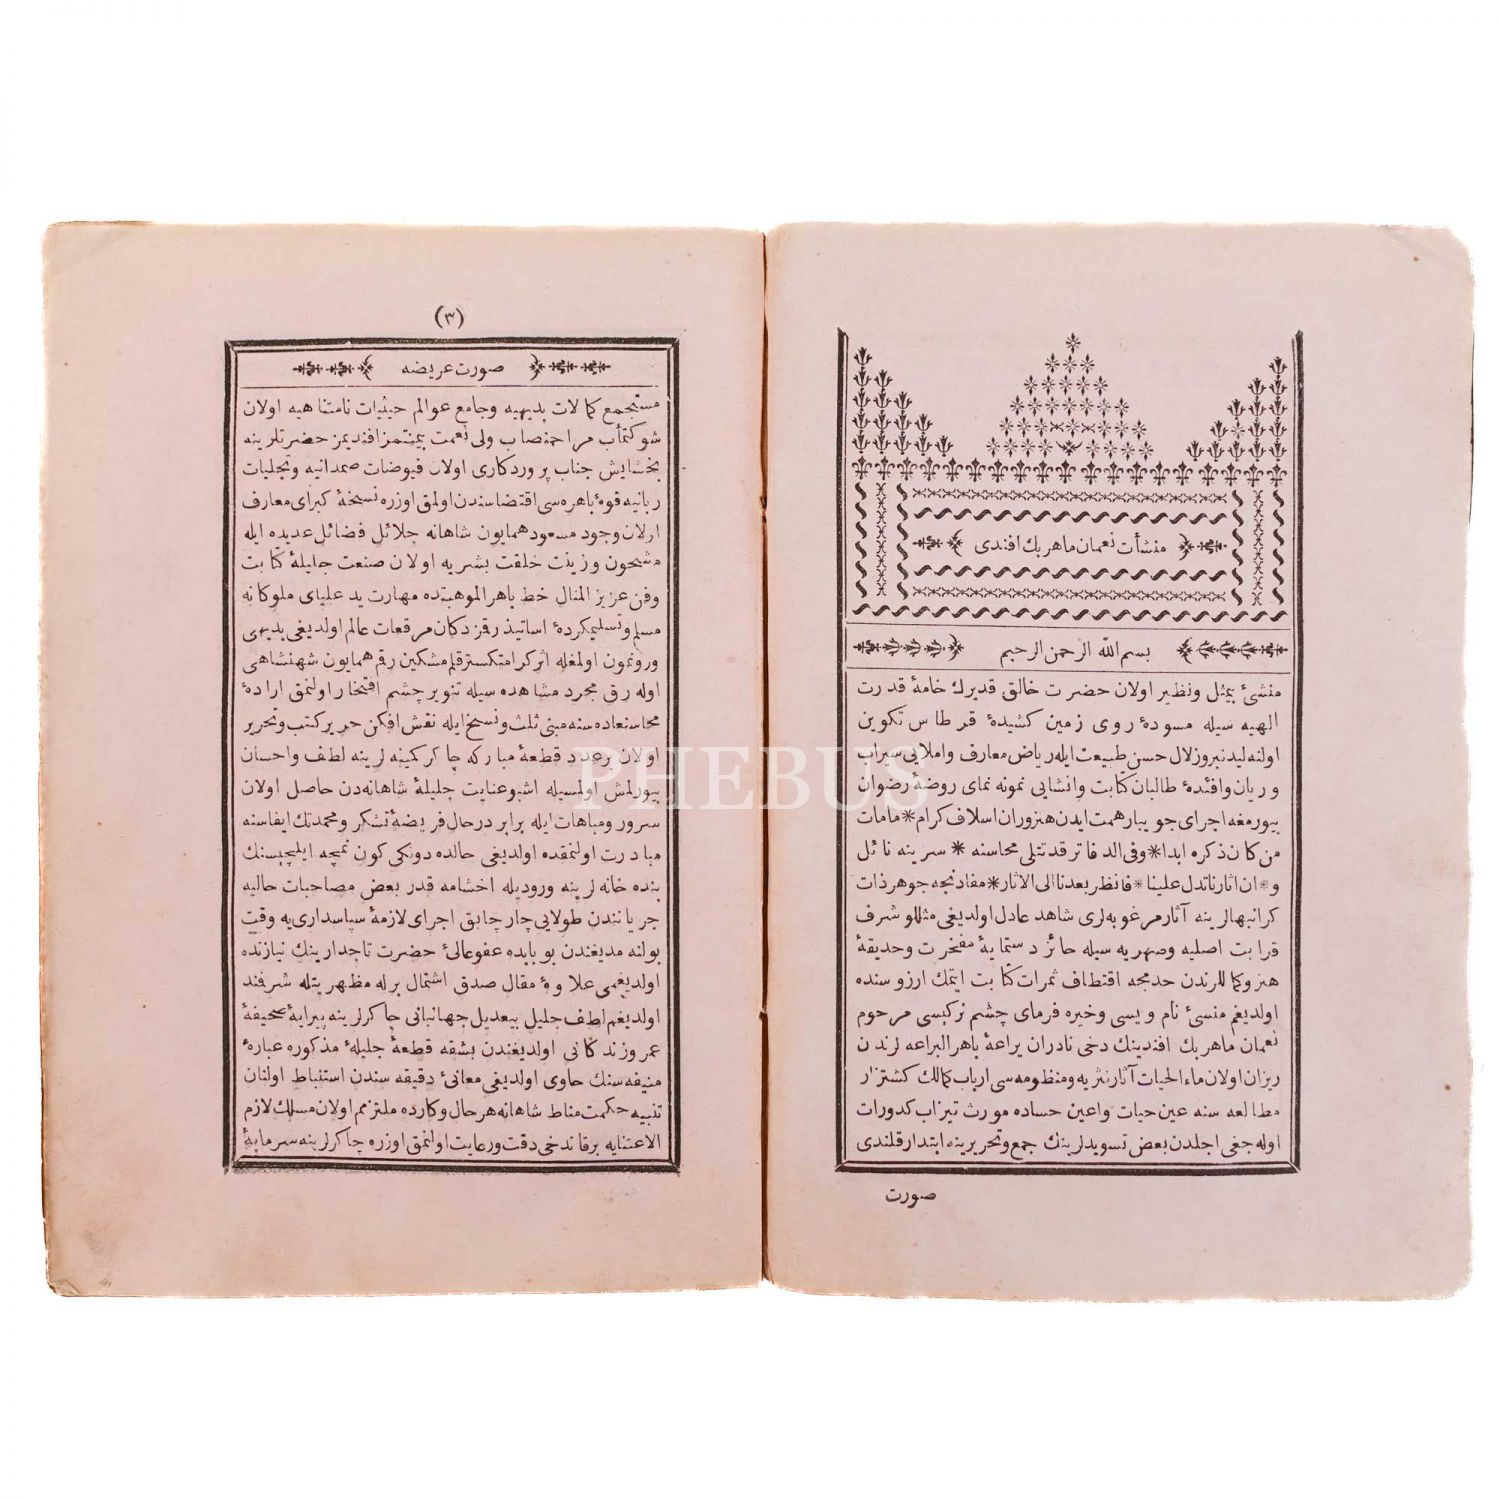 منشأت نعمان ماهر بك افندى
بسم الله الرحمن الرحيم
منشئ بيمثل ونظير اولان حضرت خالق قديرك خامهٔ قدرت
الهيه سيله مسودهٔ روى زمين كشيدهٔ قرطاس تكوين
اولنه ليدنبروزلال حسن طبيعت ايله رياض معارف واملايى سيراب
وريان وافئدهٔ طالبان كتابت وانشايى نمونه نماى روضهٔ رضوان
بيورمغه اجراى جويبار همت ايدن هنروران اسلاف كرام * مامات
من كان ذكره ابدا * وفى الدفاتر قد تتلى محاسنه * سرينه نائل
و * ان اثارنا تدل علينا * فانظر بعدنا الى الاثار * مفادنجه جوهر ذات
كرانبهالرينه آثار مرغوبه لرى شاهد عادل اولديغى مثللو شرف
قرابت اصليه وصهريه سيله حائز دستمايهٔ مفخرت وحديقهٔ
هنر وكماللرندن حدمجه اقتطاف ثمرات كتابت ايتمك ارزوسنده
اولديغم منسئ نام ويسى وخيره فرماى چشم نركسى مرحوم
نعمان ماهر بك افندينك دخى نادران يراعهٔ باهر البراعه لرندن
ريزان اولان ماء الحيات آثار نثريه ومنظومه سى ارباب كمالك كشتزار
مطالعه سنه عين حيات واعين حساده مورث تيزاب كدورات
اوله جغى اجلدن بعض تسويدلرينك جمع وتحريرينه ابتدار قلندى
صورت
(٣)
صورت عريضه
مستجمع كمالات بديهيه وجامع عوالم حيثيات نامتناهيه اولان
شوكتمأب مراحمنصاب ولى نعمت بيمنتمز افنديمز حضرتلرينه
بخشايش جناب پروردكارى اولان فيوضات صمدانيه وتجليات
ربانيه قوهٔ باهره سى اقتضاسندن اولمق اوزره نسخهٔ كبراى معارف
اولان وجود مسعود همايون شاهانه جلائل فضائل عديده ايله
مشحون وزينت خلقت بشريه اولان صنعت جليلهٔ كتابت
وفن عزيز المنال خط باهر الموهبتده مهارت يد علياى ملوكانه
مسلم وتسليمكردهٔ اساتيذ رقمزدكان مرقعات عالم اولديغى بديهى
ورونمون اولمغله اثر كرامتكستر قلم مشكين رقم همايون شهنشاهى
اوله رق مجرد مشاهده سيله تنوير چشم افتخار اولنمق ارادهٔ
محاسنعاده سنه مبنى ثلث ونسخ ايله نقش افكن حرير كتب وتحرير
اولان برعدد قطعهٔ مباركه چاكر كمينه لرينه لطف واحسان
بيورلمش اولمسيله اشبو عنايت جليلهٔ شاهانه دن حاصل اولان
سرور ومباهات ايله برابر درحال فريضهٔ تشكر ومحمدتك ايفاسنه
مبادرت اولنمقده اولديغى حالده دونكى كون نمچه ايلچيسنك
بنده خانه لرينه وروديله اخشامه قدر بعض مصاحبات حاليه
جرياننندن طولايى چار چابق اجراى لازمهٔ سپاسدارى يه وقت
بولنه مديغندن بو بابده عفو عالئ حضرت تاجدارينك نيازنده
اولديغمى علاوهٔ مقال صدق اشتمال برله مظهريتله شرفند
اولديغم لطف جليل بيعديل جهانبانى چاكرلرينه پيرايهٔ صحيفهٔ
عمر وزندكانى اولديغندن بشقه قطعهٔ جليلهٔ مذكوره عبارهٔ
منيفه سنك حاوى اولديغى معانئ دقيقه سندن استنباط اولنان
تنبيه حكمت مناط شاهانه هرحال وكارده ملتزمم اولان مسلك لازم
الاعتنايه برقاتدخى دقت ورعايت اولنمق اوزره چاكرلرينه سرمايهٔ
PHEBUS